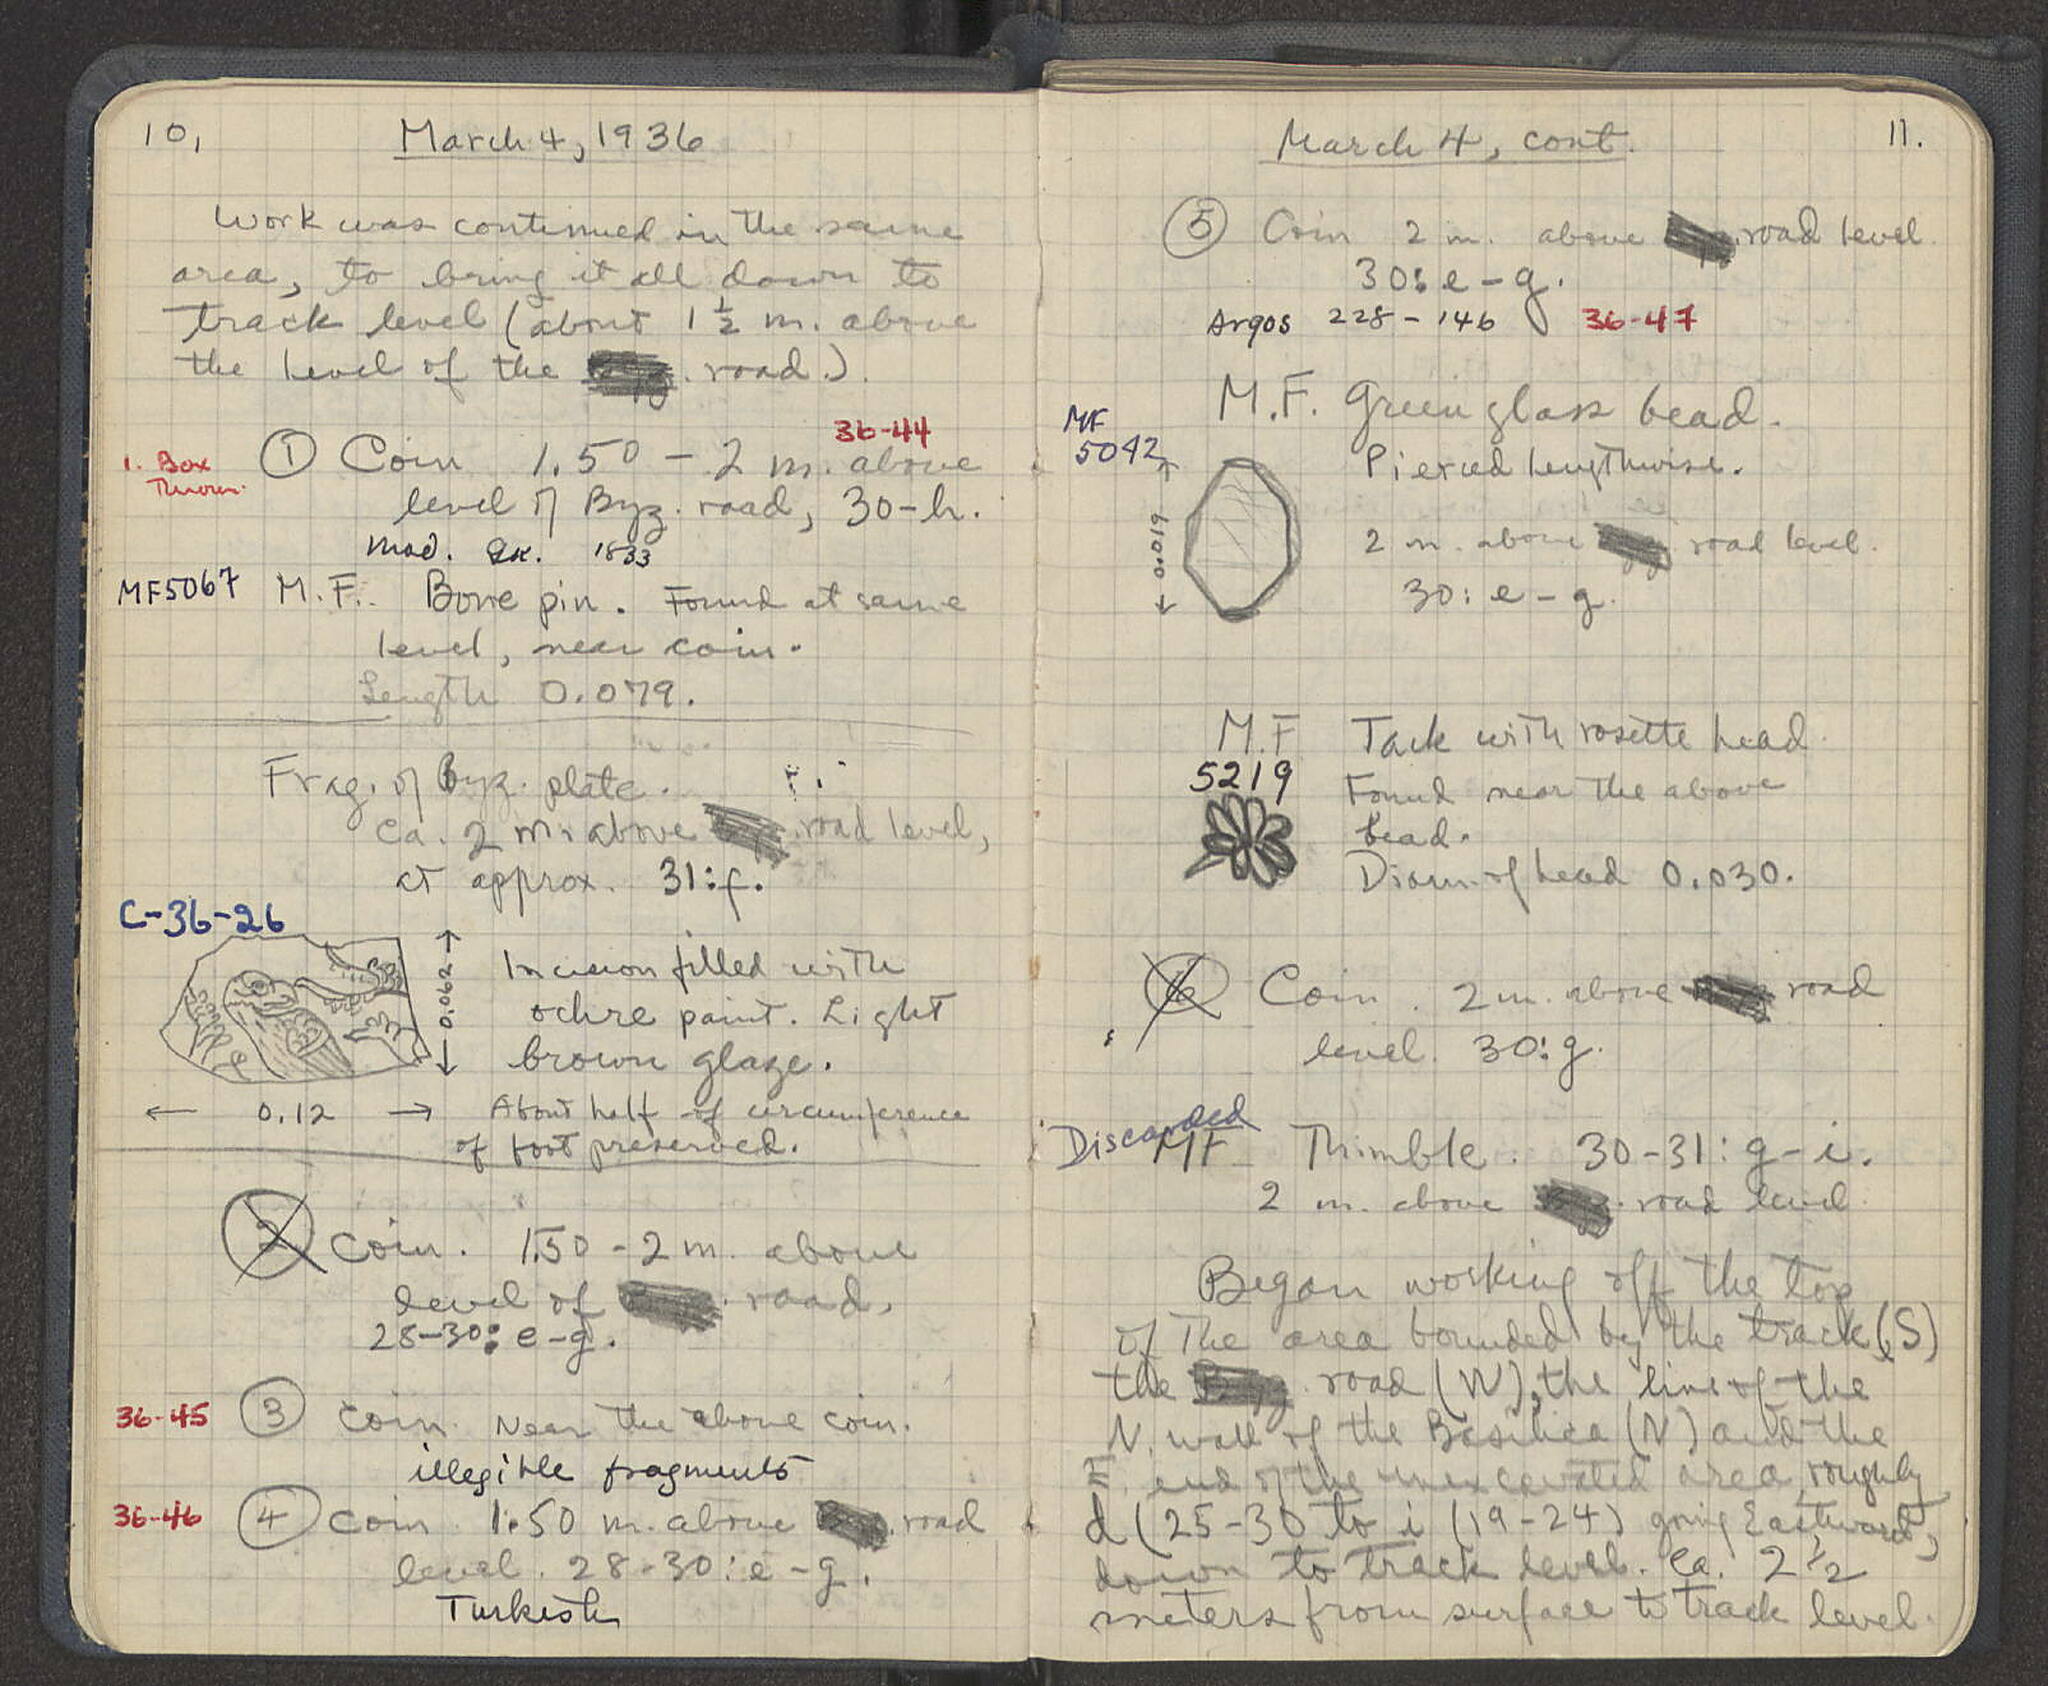 10,
March 4, 1936
Work was continued in the same
area, to bring it all down to
track level (about 1 1/2 m. above
the level of the road.).
36-44
1. Box
① Coin 1.50 - 2 m. above
level of Byz. road, 30-h.
Mod. Gk. 1833
MF5067 M.F. Bone pin. Found at same
level, near coin.
Length 0.079.
Frag. of Byz. plate.
Ca. 2 m. above road level,
at approx. 31:f.
C-36-26
0.062
Incision filled with
ochre paint. Light
brown glaze.
0.12
About half of circumference
of foot preserved.
2 Coin. 1.50 - 2 m. above
level of road.
28-30: e-g.
36-45 ③ Coin. Near the above coin.
illegible fragments
36-46 ④ Coin 1.50 m. above road
level. 28-30: e-g.
Turkish
March 4, cont.
11.
⑤ Coin 2 m. above road level.
30: e-g.
Argos 228-146 36-47
M.F. Green glass bead.
MF
5042
Pierced lengthwise.
0.019
2 m. above road level.
30: e-g.
M.F Tack with rosette head
5219
Found near the above
bead.
Diam. of head 0.030.
6 Coin. 2 m. above road
level. 30:g.
Discarded
MF Thimble. 30-31: g-i.
2 m. above road level
Began working off the top
of the area bounded by the track (S)
the Byz. road (W), the line of the
N. wall of the Basilica (N) and the
E. end of the unexcavated area, roughly
d (25-30 to i (19-24) going Eastward,
down to track level. Ca. 2 1/2
meters from surface to track level.